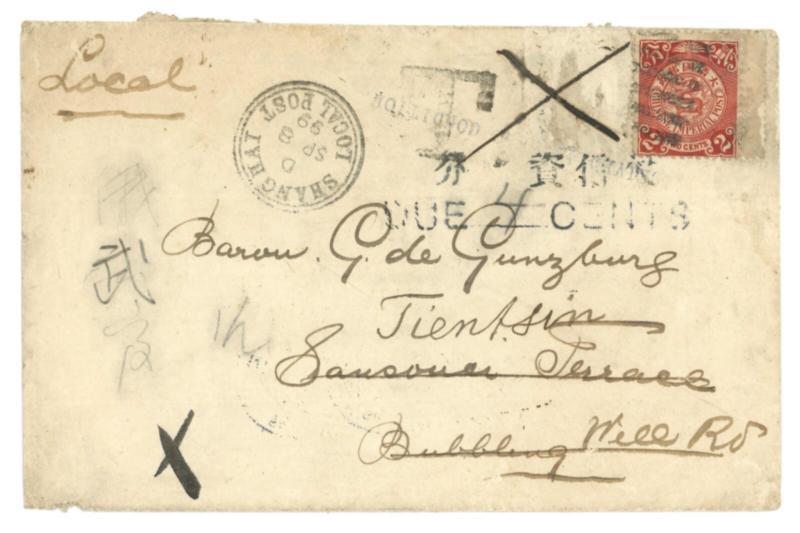 Local
SHANGHAI LOCAL POST
D
SP 8
99
2 IMPERIAL POST 2
TWO CENTS
分 資 信
DUE 4 CENTS
Baron. G. de Gunzburg
Tientsin
Sansouci Terrace
Bubbling Well Rd
武